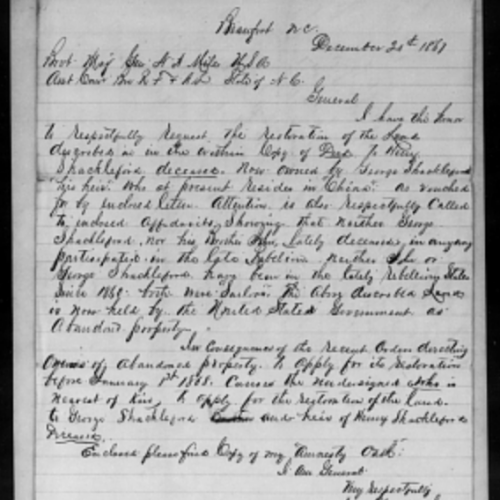 Beaufort N C.
December 20th 1867
Brvt. Maj Gen. N A Miles U.S.A
Asst Com' Bu R. F & A. L. State of N. C.
General
I have the honor
to respectfully request, the restoration of the Land
described in the within Copy of Deed to Henry
Shackleford deceased. Now owned by George Shackleford
his heir. Who at present resides in China. as vouched
for by inclosed letter. Attention is also respectfully Called
to inclosed Affidavits, Showing that neither George
Shackleford, nor his Brother lately deceased, in anyway
participated in the late Rebellion. Neither
George Shackleford, have been in the lately Rebellious States
Since 1860. both were Sailors. The Above described Land
is now held by the United States Government as
Abandond property.
In Consequence of the recent Orders directing
Owners of Abandoned property. to Apply for its restoration
before January 1st 1868. Causes the undersigned who is
nearest of Kin, to Apply for the restoration of the land.
to George Shackleford and heir of Henry Shackleford
Deceased.
Enclosed please find Copy of my Amnesty Oath.
I Am General
Very Respectfully